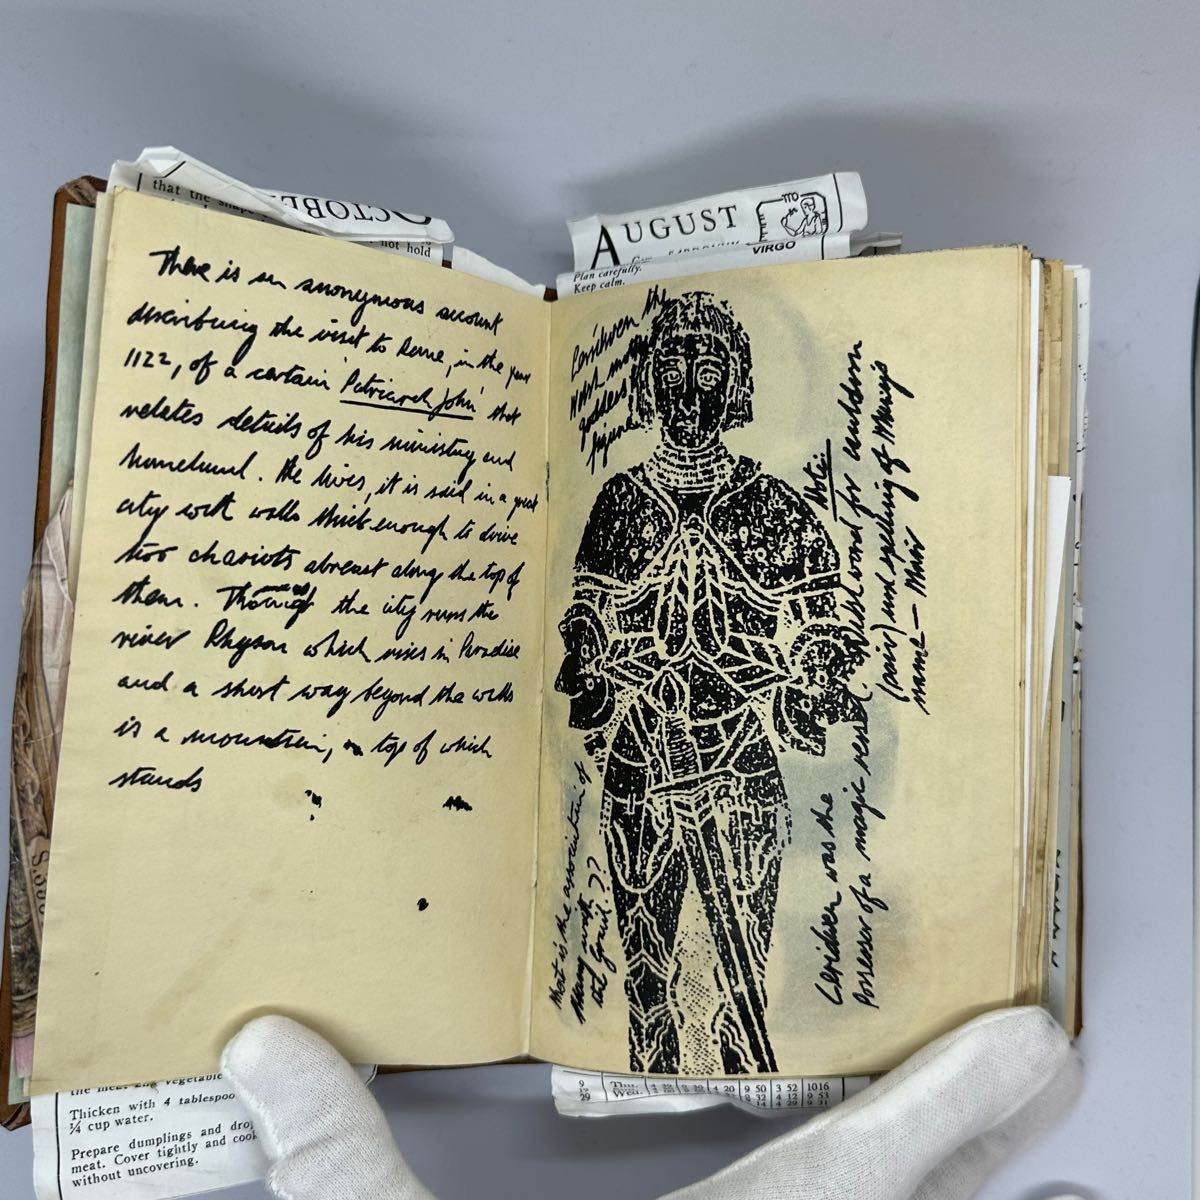 that the shape
OCTOBER
not hold
AUGUST
VIRGO
Plan carefully.
Keep calm.
There is an anonymous account
describing the visit to Rome, in the year
1122, of a certain 'Patriarch John' that
relates details of his ministry and
homeland. He lives, it is said in a great
city with walls thick enough to drive
two chariots abreast along the top of
them. Through the city runs the
river Physon which rises in Paradise
and a short way beyond the walls
is a mountain, on top of which
stands
Cerridwen the
Welsh moon
goddess
figure
Note:
Welsh word for cauldron
(pair) and spelling of Mary's
name — Mair
Ceridwen was the
Possessor of a magic vessel.
What is the association of
Mary with
the Grail??
the meat and vegetable
Thicken with 4 tablespoo
¼ cup water.
Prepare dumplings and drop
meat. Cover tightly and cook
without uncovering.
S.
9
29
Thu.
Wed.
4 20
9 50
3 52
1016
8 32
4 12
9 53
4 29
9 31